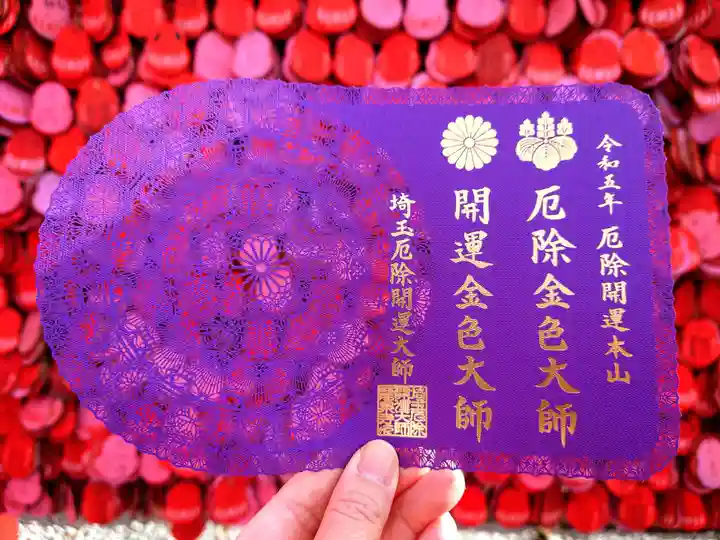 令和五年 厄除開運本山
厄除金色大師
開運金色大師
埼玉厄除開運大師